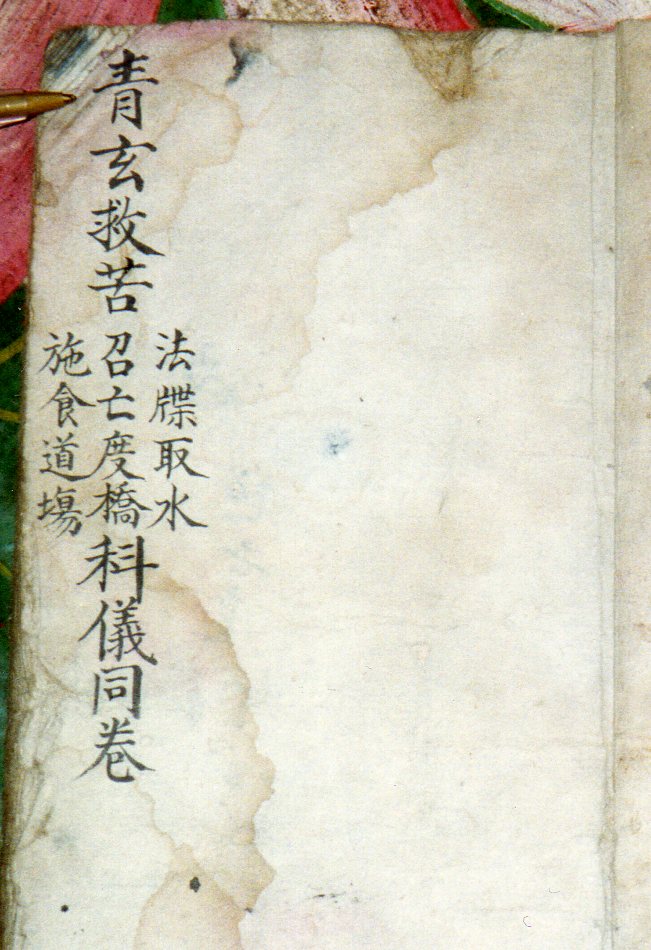 青玄救苦
法牒取水
召亡度橋
施食道塲
科儀同卷